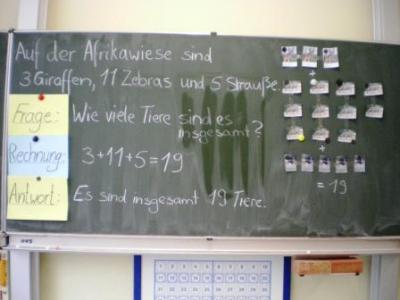 Auf der Afrikawiese sind
3 Giraffen, 11 Zebras und 5 Strauße.
Frage: Wie viele Tiere sind es
insgesamt?
Rechnung: 3+11+5=19
Antwort: Es sind insgesamt 19 Tiere.
+
+
= 19